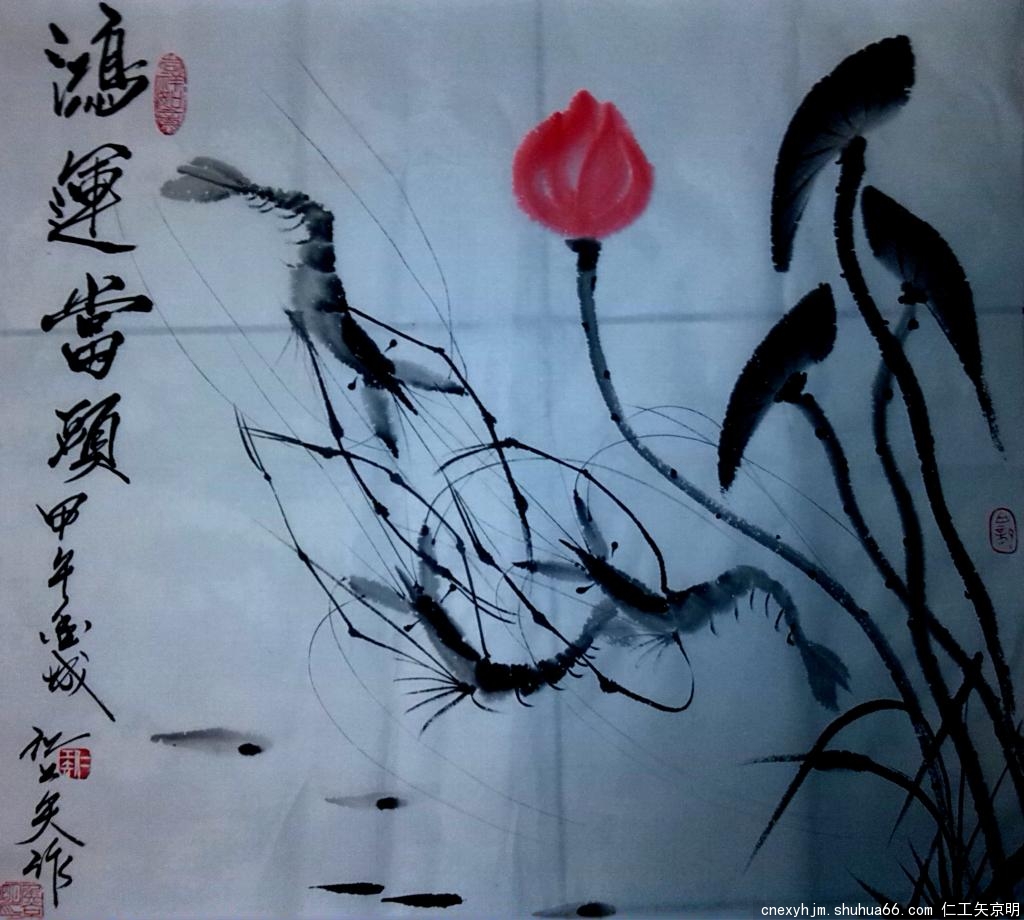 鴻運當頭
甲午金城
矢作
cnexyhjm.shuhua66.com 仁工矢京明